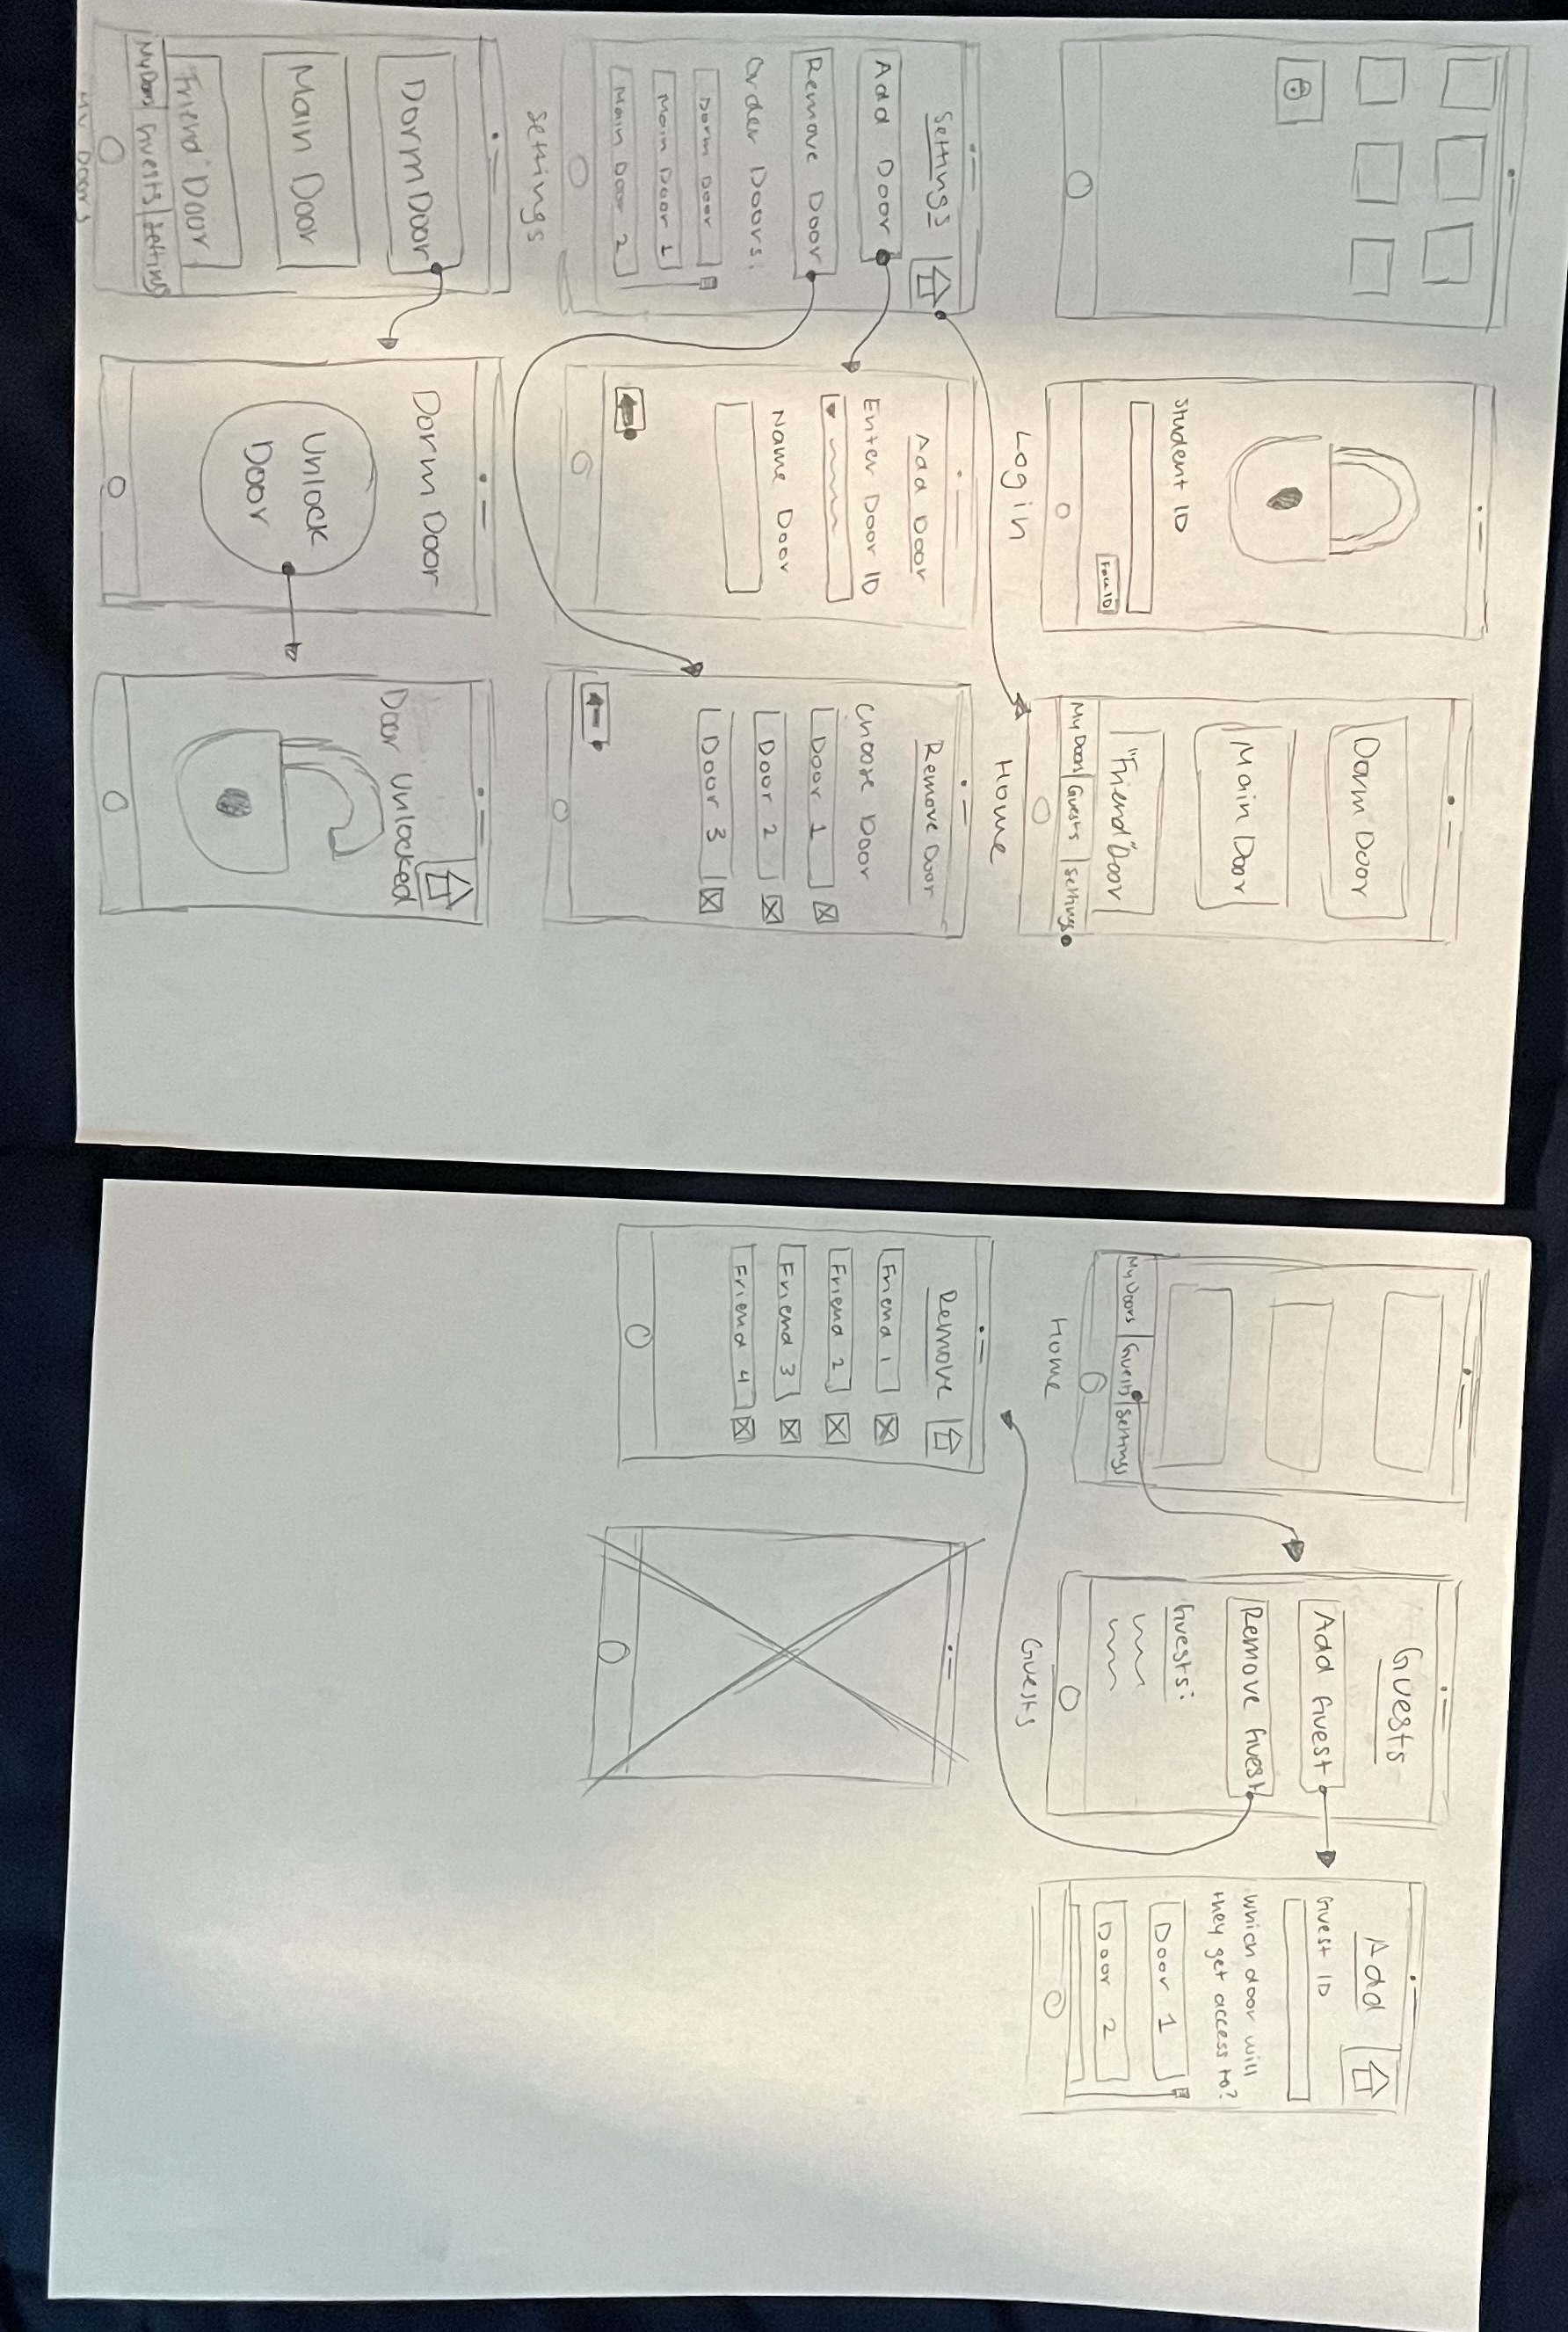 Student ID
Face ID
Login
Dorm Door
Main Door
"Friend" Door
My Doors Guests Settings
Home
Settings
Add Door
Remove Door
Order Doors:
Dorm Door
Main Door 1
Main Door 2
Settings
Add Door
Enter Door ID
Name Door
Remove Door
Choose Door
Door 1
Door 2
Door 3
Dorm Door
Main Door
"Friend" Door
My Doors Guests Settings
My Doors
Dorm Door
Unlock
Door
Door Unlocked
My Doors Guests Settings
Home
Guests
Add Guest
Remove Guest
Guests:
Guests
Add
Guest ID
Which door will
they get access to?
Door 1
Door 2
Remove
Friend 1
Friend 2
Friend 3
Friend 4